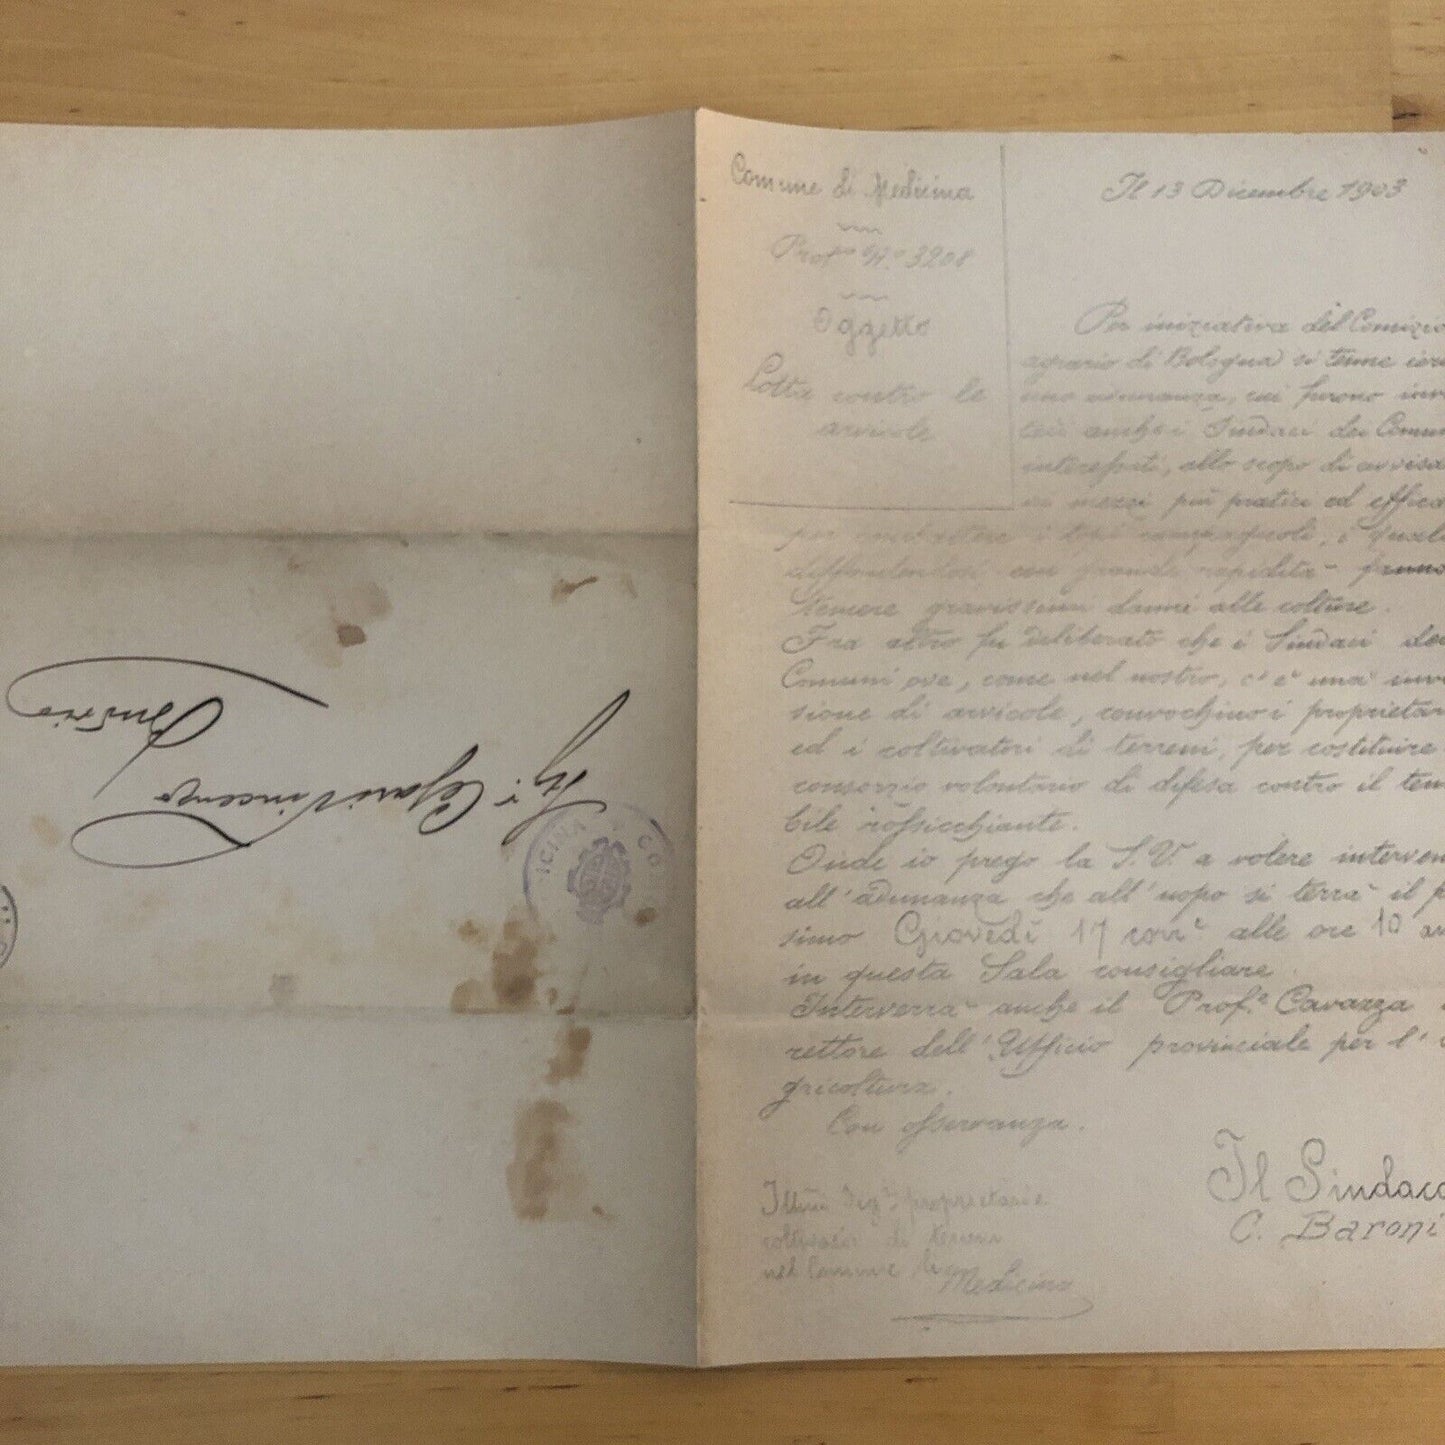 Comune di Medicina
Prot.º N.º 3208
Oggetto
Lotta contro le
arvicole
Il 13 Dicembre 1903
Per iniziativa del Comizio
agrario di Bologna si tenne ieri
una adunanza, cui furono invi
tati anche i Sindaci dei Comun
interessati, allo scopo di avvisa
ai mezzi più pratici ed effica
per combattere i topi campagnoli, i quali
diffondendosi con grande rapidità fanno
temere gravissimi danni alle colture.
Fra altro fu deliberato che i Sindaci dei
Comuni ove, come nel nostro, c'è una inva
sione di arvicole, convochino i proprietar
ed i coltivatori di terreni, per costituire
consorzio volontario di difesa contro il terri
bile rossicchiante.
Onde io prego la S. V. a volere interven
all'adunanza che all'uopo si terrà il p
simo Giovedì 17 corr.e alle ore 10 an
in questa Sala consigliare.
Interverrà anche il Prof.e Cavazza
rettore dell'Ufficio provinciale per l'
gricoltura.
Con osservanza.
Il Sindaco
C. Baroni
Illmi Sig.ri proprietari e
coltivatori di terreni
nel Comune di
Medicina
Sig.r Cesari Vincenzo
Budrio
ICINA CO